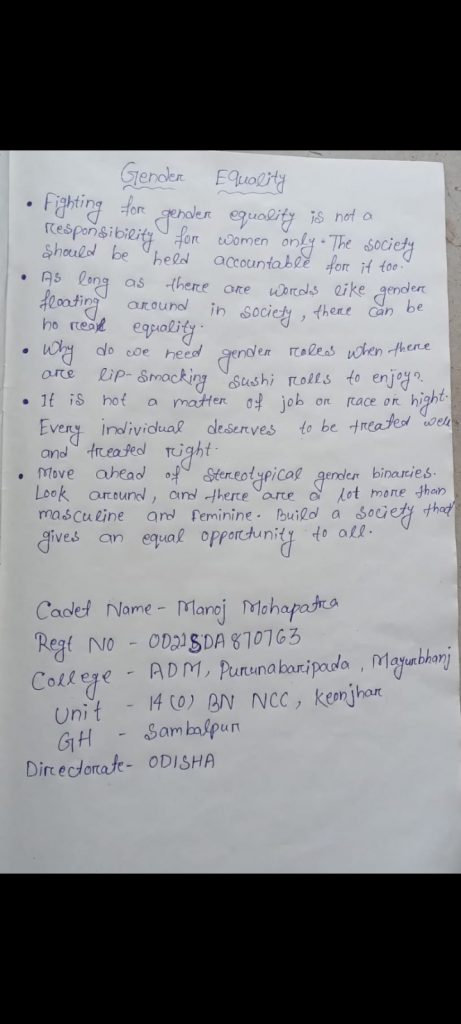 Gender Equality
• Fighting for gender equality is not a
responsibility for women only. The society
should be held accountable for it too.
• As long as there are words like gender
floating around in society, there can be
no real equality.
• Why do we need gender roles when there
are lip-smacking sushi rolls to enjoy?
• It is not a matter of job or race or hight.
Every individual deserves to be treated well
and treated right.
• Move ahead of stereotypical gender binaries.
Look around, and there are a lot more than
masculine and feminine. Build a society that
gives an equal opportunity to all.
Cadet Name - Manoj Mohapatra
Regt NO - OD21SDA870763
College - ADM, Purunabaripada, Mayurbhanj
Unit - 14 (O) BN NCC, Keonjhar
GH - Sambalpur
Directorate - ODISHA